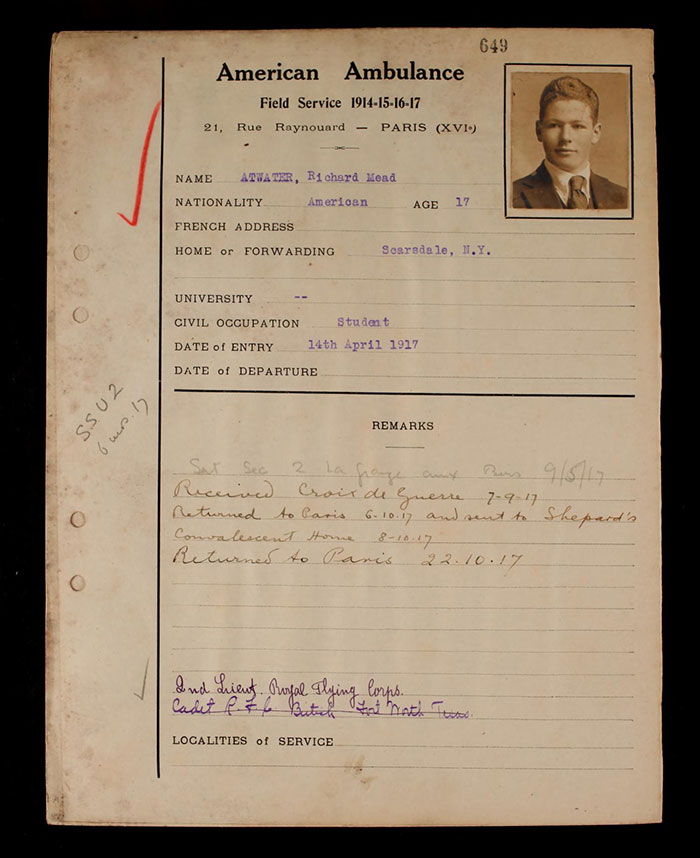 649
American Ambulance
Field Service 1914-15-16-17
21, Rue Raynouard — PARIS (XVIe)
NAME ATWATER, Richard Mead
NATIONALITY American AGE 17
FRENCH ADDRESS
HOME or FORWARDING Scarsdale, N.Y.
UNIVERSITY --
CIVIL OCCUPATION Student
DATE of ENTRY 14th April 1917
DATE of DEPARTURE
S.S.U 2
6 mos. 17
REMARKS
Sec 2 La grange aux 9/5/17
Received Croix de Guerre 7-9-17
Returned to Paris 6-10.17 and sent to Shepard's
Convalescent Home 8-10.17
Returned to Paris 22.10.17
2nd Lieut. Royal Flying Corps.
Cadet R.F.C Fort Worth Texas
LOCALITIES of SERVICE